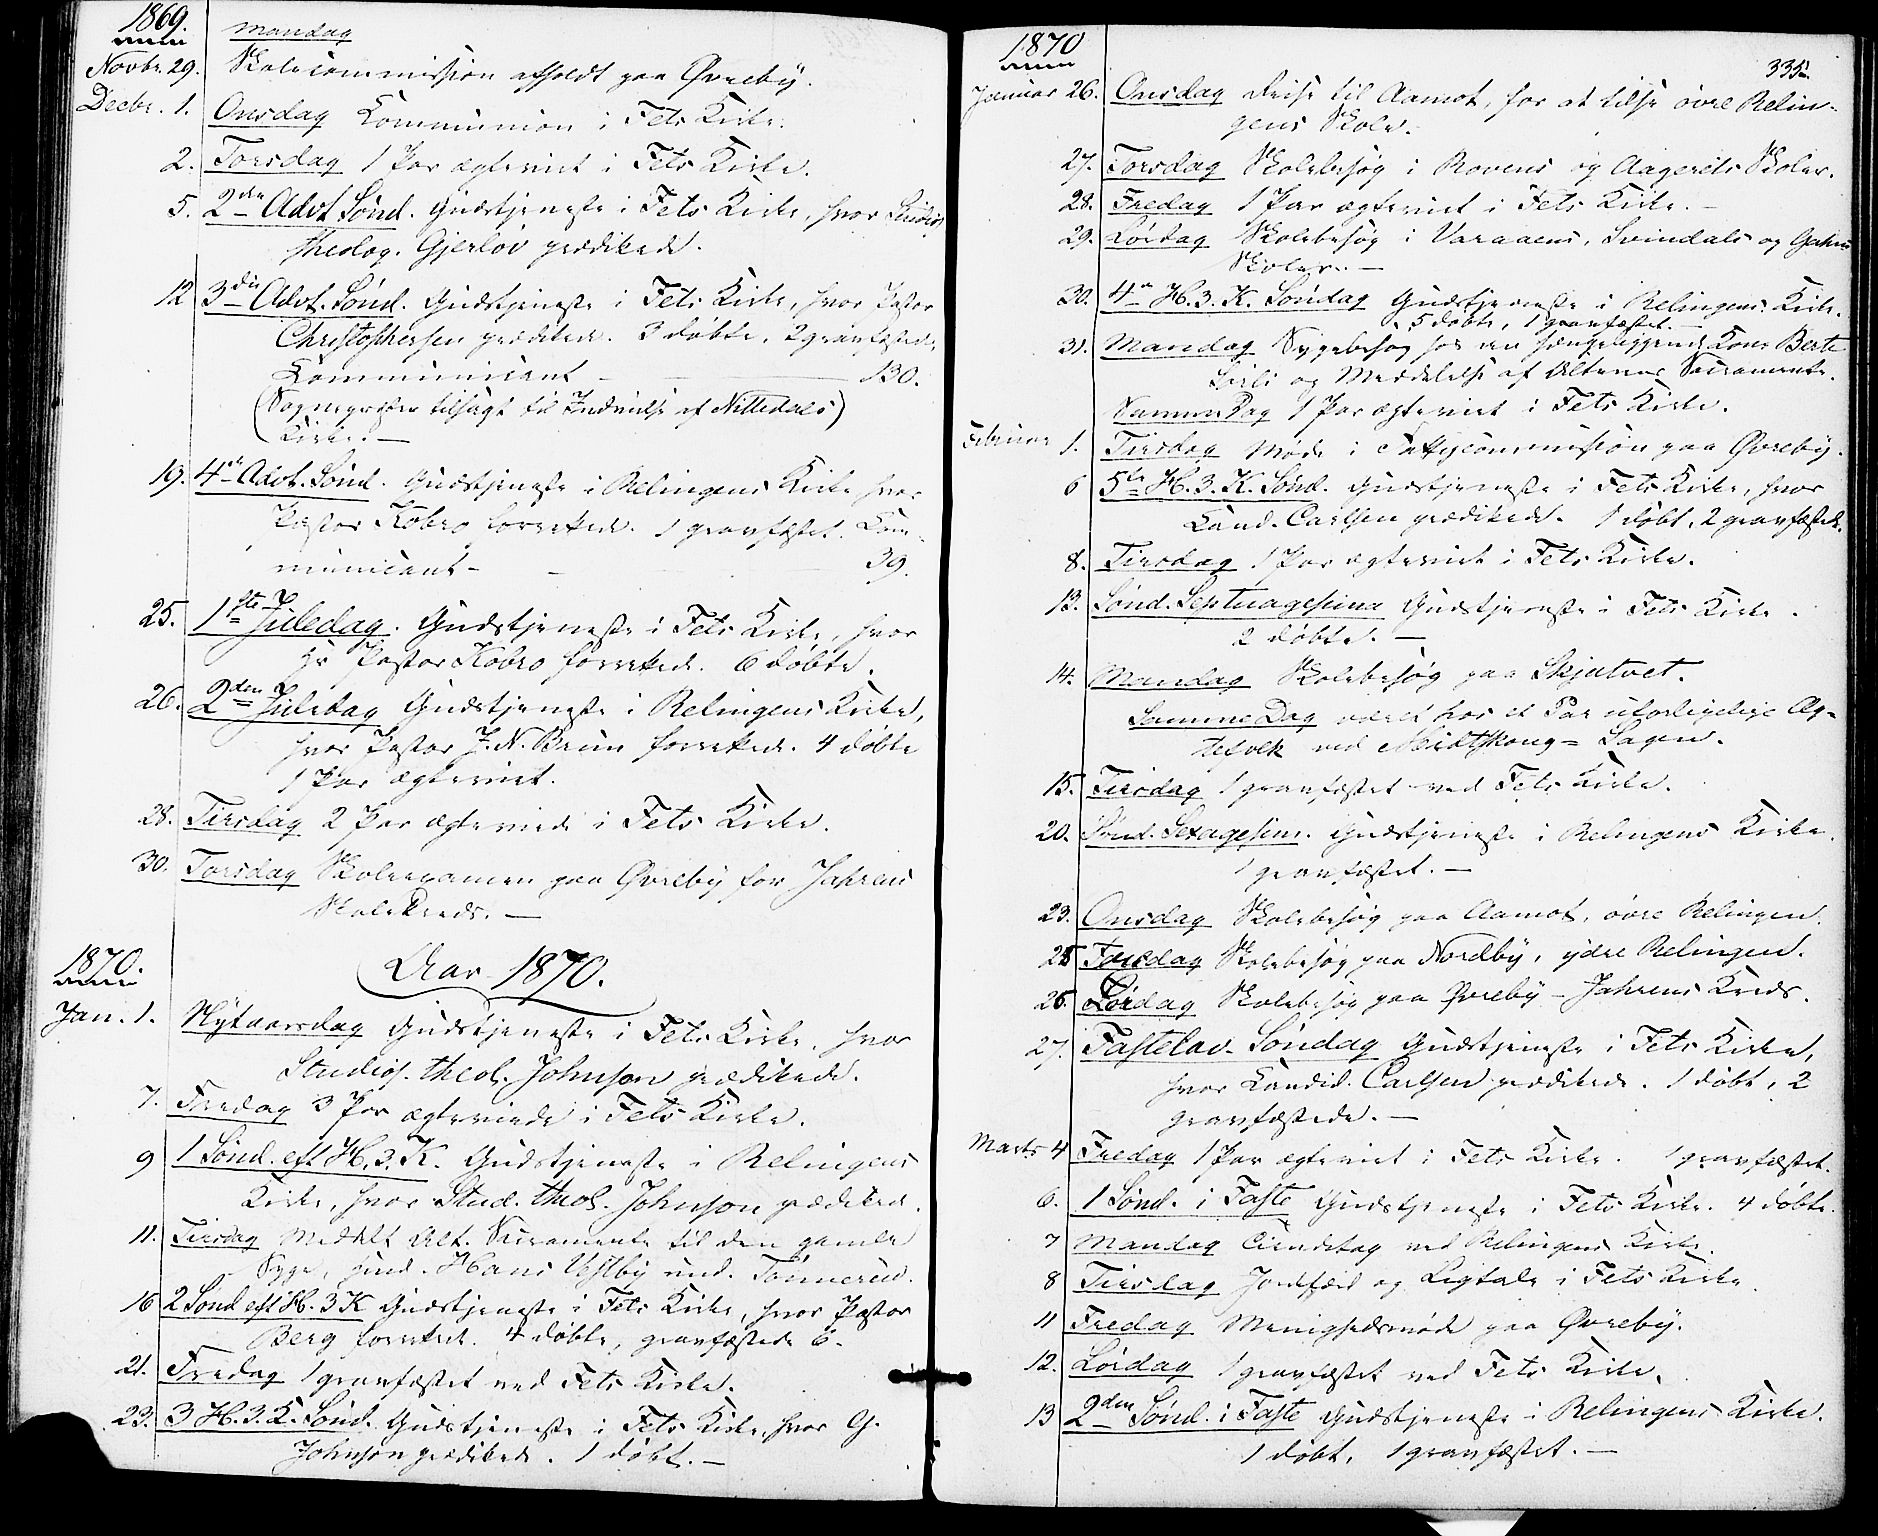 1869.
Mandag
Novbr. 29. Skolecommission afholdt paa Øvreby.
Decbr. 1. Onsdag Communion i Fets Kirke.
2. Torsdag 1 Par ægteviet i Fets Kirke.
5. 2den Advt Sønd. Gudstjeneste i Fets Kirke, hvor Studios
theolog. Gjerløv prædikede.
12 3die Advt. Sønd. Gudstjeneste i Fets Kirke, hvor Pastor
Christophersen prædikede. 3 døbte, 2 gravfæstede,
Communicant - 130.
(Sognepræsten tilsagt til Indvielse af Nittedals
Kirke.) —
19. 4de Advt. Sønd. Gudstjeneste i Relingens Kirke hvor
Pastor Kobro forrettede. 1 gravfæstet. Com-
municant - 39.
25. 1ste Juledag. Gudstjeneste i Fets Kirke, hvor
Hr Pastor Kobro forrettede. 6 døbte.
26. 2den Juledag Gudstjeneste i Relingens Kirke,
hvor Pastor J. N. Brun forrettede. 4 døbte
1 Par ægteviet.
28. Tirsdag 2 Par ægteviede i Fets Kirke.
30. Torsdag Skoleexamen paa Øvreby for Jahrens
Skolekreds. —
1870. Aar 1870.
Jan. 1. Nytaarsdag Gudstjeneste i Fets Kirke, hvor
Studios. theol. Johnson prædikede.
7. Fredag 3 Par ægteviede i Fets Kirke.
9 1 Sønd. eft H. 3. K. Gudstjeneste i Relingens
Kirke, hvor Stud. theol. Johnson prædikede.
11. Tirsdag Meddelt Alt. Sacramente til den gamle
Syge, Hans Vestby und. Tønnerud.
16 2 Sønd eft H. 3 K Gudstjeneste i Fets Kirke, hvor Pastor
Berg forrettede. 4 døbte, gravfæstede 6.
21. Fredag 1 gravfæstet ved Fets Kirke.
23. 3 H. 3. K. Sønd. Gudstjeneste i Fets Kirke, hvor G.
Johnson prædikede. 1 døbt. —
1870
335.
Januar 26. Onsdag Reise til Aamot, for at tilse øvre Relin-
gens Skole.
27. Torsdag Skolebesøg i Rovens og Aagerets Skoler.
28. Fredag 1 Par ægteviet i Fets Kirke. —
29. Lørdag Skolebesøg i Varaaens, Svindals og Gahns
Skoler. —
30. 4de H. 3. K. Søndag Gudstjeneste i Relingens Kirke.
5 døbte, 1 gravfæstet. —
31. Mandag Sygebesøg hos en sængeliggende Kone Berte
og Meddelelse af Alterens Sacramente.
Samme Dag 1 Par ægteviet i Fets Kirke.
Februar 1. Tirsdag Møde i Fattigcommission paa Øvreby.
6 5te H. 3. K. Sønd. Gudstjeneste i Fets Kirke, hvor
Cand. Carlsen prædikede. 1 døbt, 2 gravfæstede.
8. Tirsdag 1 Par ægteviet i Fets Kirke.
13. Sønd. Septuagesima Gudstjeneste i Fets Kirke.
2 døbte. —
14. Mandag Skolebesøg paa Skjatvet.
Samme Dag været hos et Par uforligelige Æg-
tefolk ved Meidtskoug = Sagen.
15. Tirsdag 1 gravfæstet ved Fets Kirke.
20. Sønd. Sexagesim. Gudstjeneste i Relingens Kirke.
1 gravfæstet. —
23. Onsdag Skolebesøg paa Aamot, øvre Relingen.
25 Fredag Skolebesøg paa Nordby, ydre Relingen.
26. Lørdag Skolebesøg paa Øvreby - Jahrens Kreds.
27. Fastelav. Søndag Gudstjeneste i Fets Kirke,
hvor Candid. Carlsen prædikede. 1 døbt, 2
gravfæstede. —
Marts 4 Fredag 1 Par ægteviet i Fets Kirke. 1 gravfæstet.
6. 1 Sønd. i Faste Gudstjeneste i Fets Kirke. 4 døbte.
7 Mandag ved Relingens Kirke.
8 Tirsdag Jordfæst og Ligtale i Fets Kirke
11 Fredag Menighedsmøde paa Øvreby.
12. Lørdag 1 gravfæstet ved Fets Kirke.
13 2den Sønd. i Faste Gudstjeneste i Relingens Kirke.
1 døbt, 1 gravfæstet. —